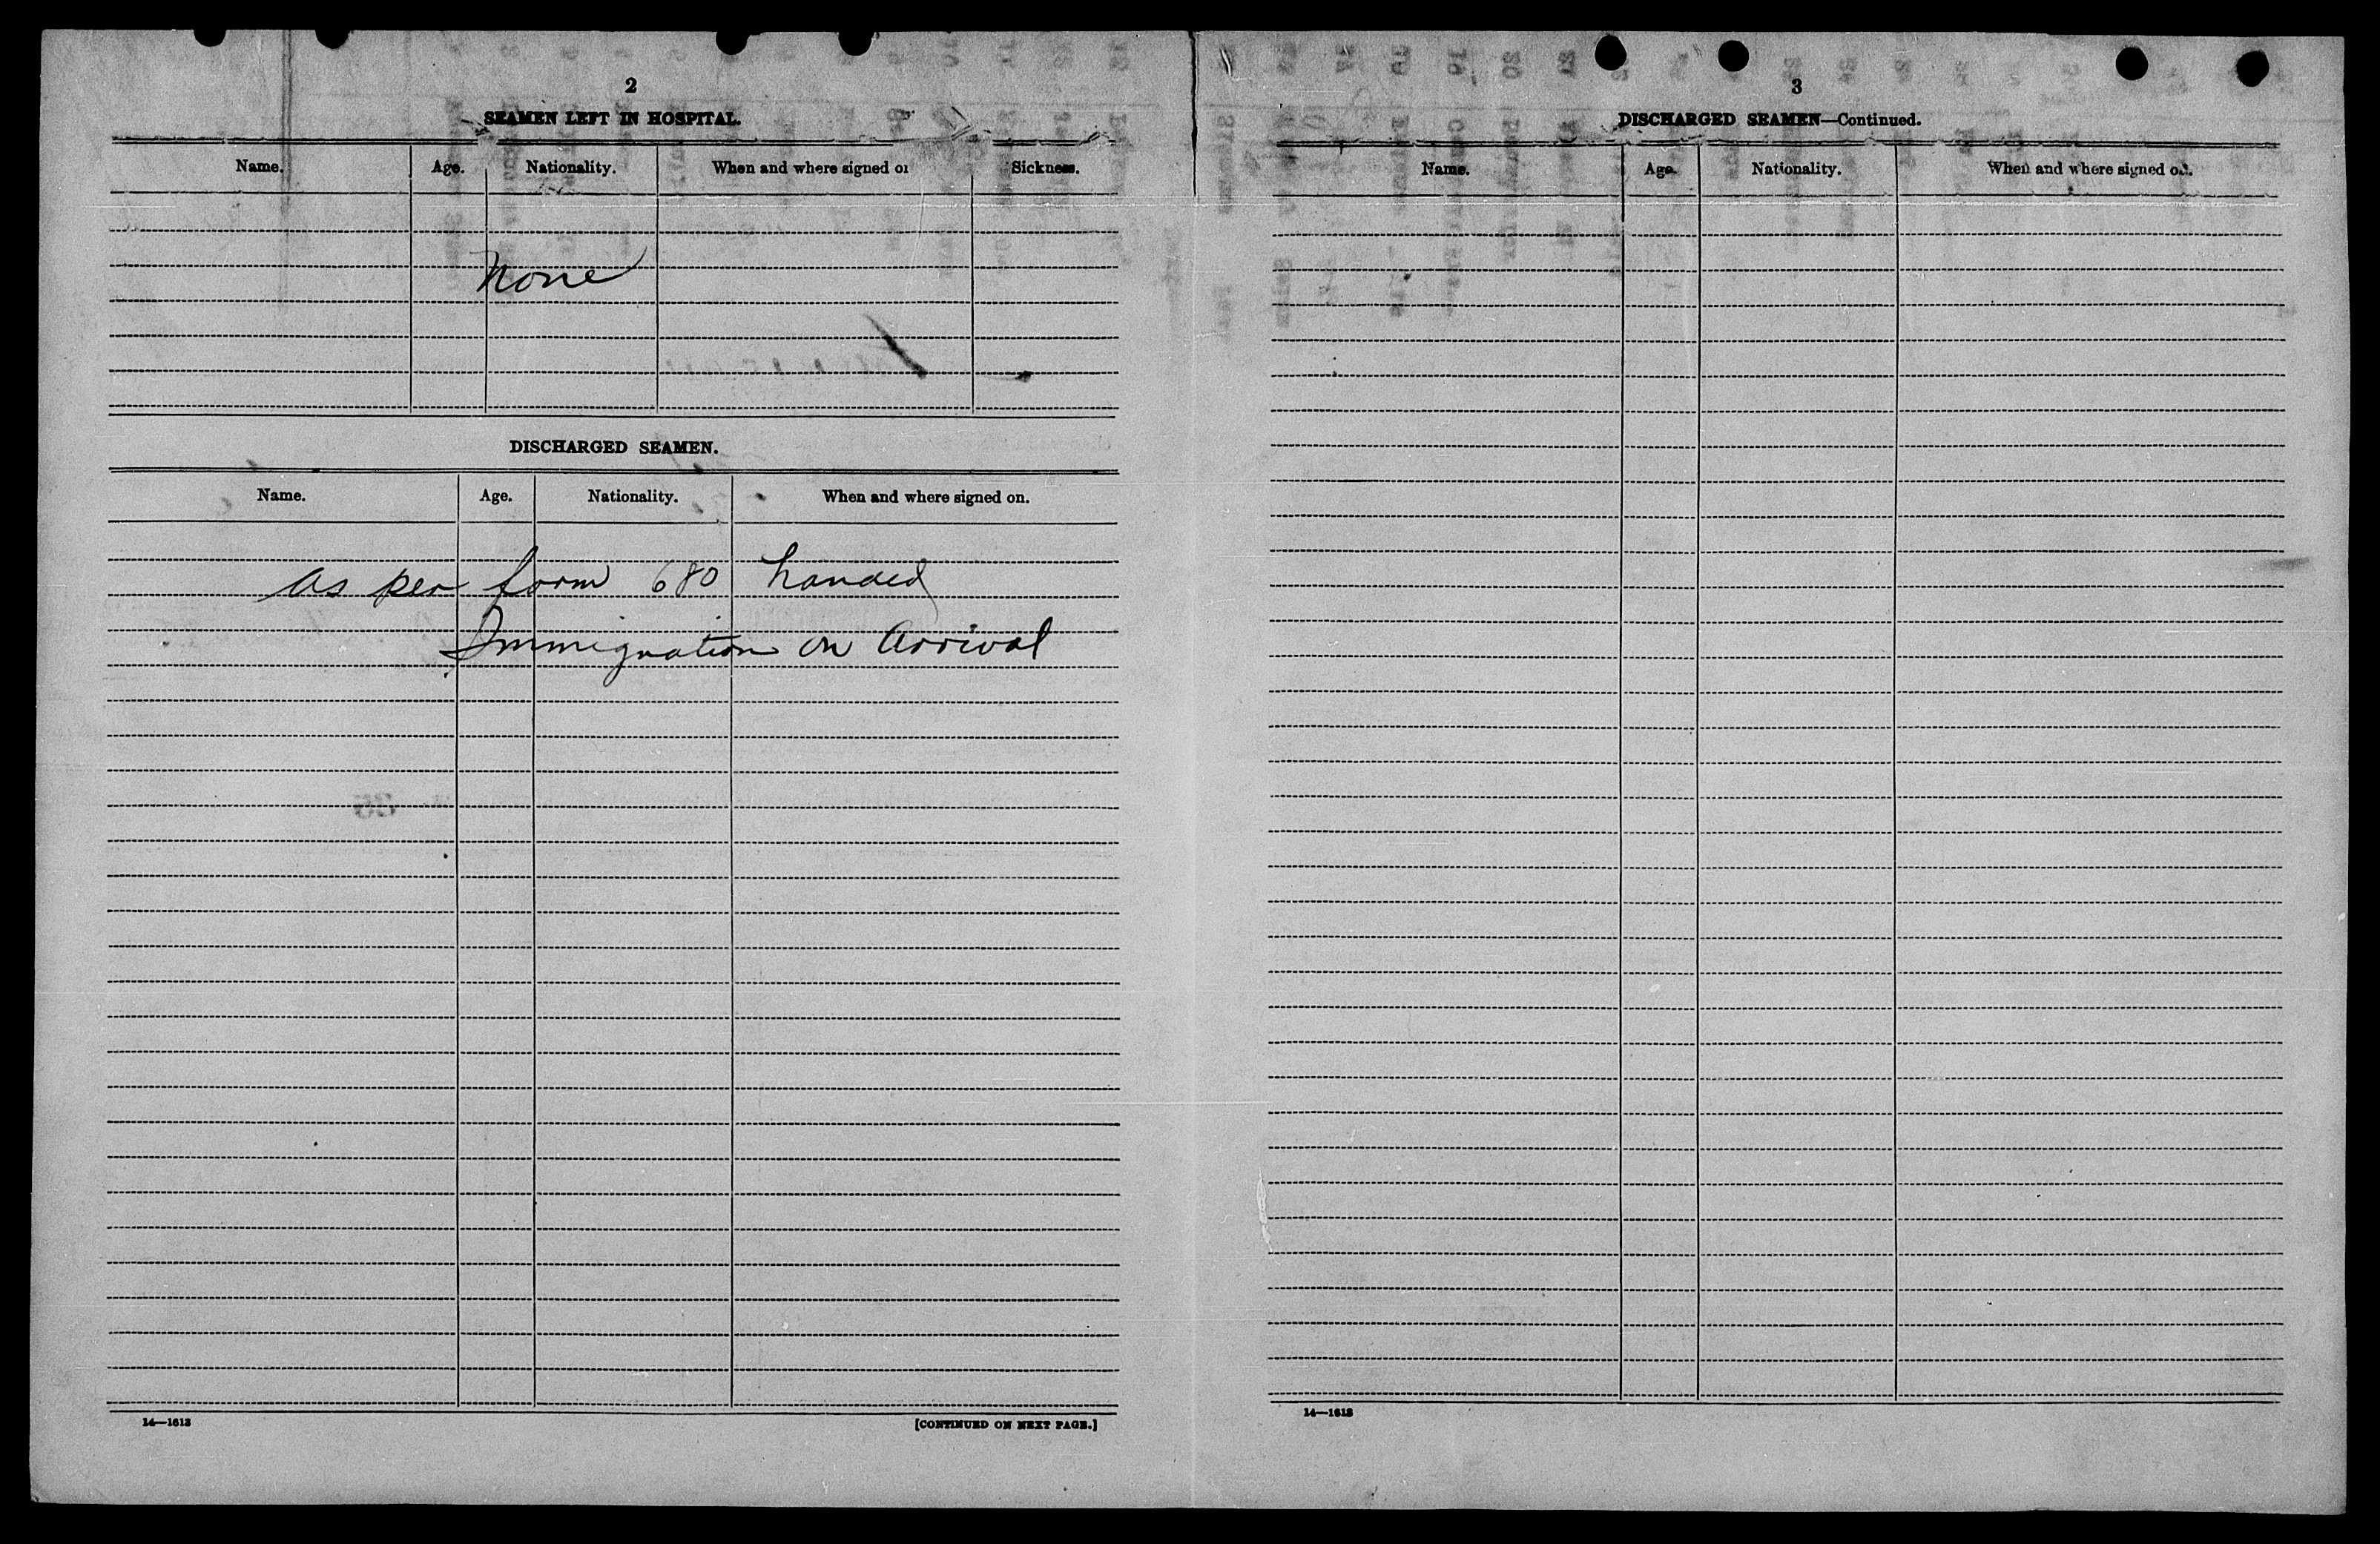 2
SEAMEN LEFT IN HOSPITAL.
Name. Age. Nationality. When and where signed on Sickness.
None
DISCHARGED SEAMEN.
Name. Age. Nationality. When and where signed on.
As per form 680 handed
Immigration on Arrival
14—1613
[CONTINUED ON NEXT PAGE.]
3
DISCHARGED SEAMEN—Continued.
Name. Age. Nationality. When and where signed on.
14—1613